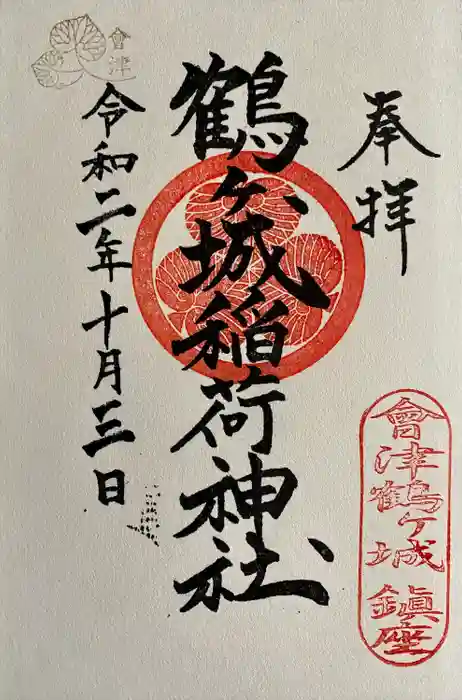 奉拝
鶴ヶ城稲荷神社
令和二年十月三日
會津
會津鶴ヶ城 鎮座